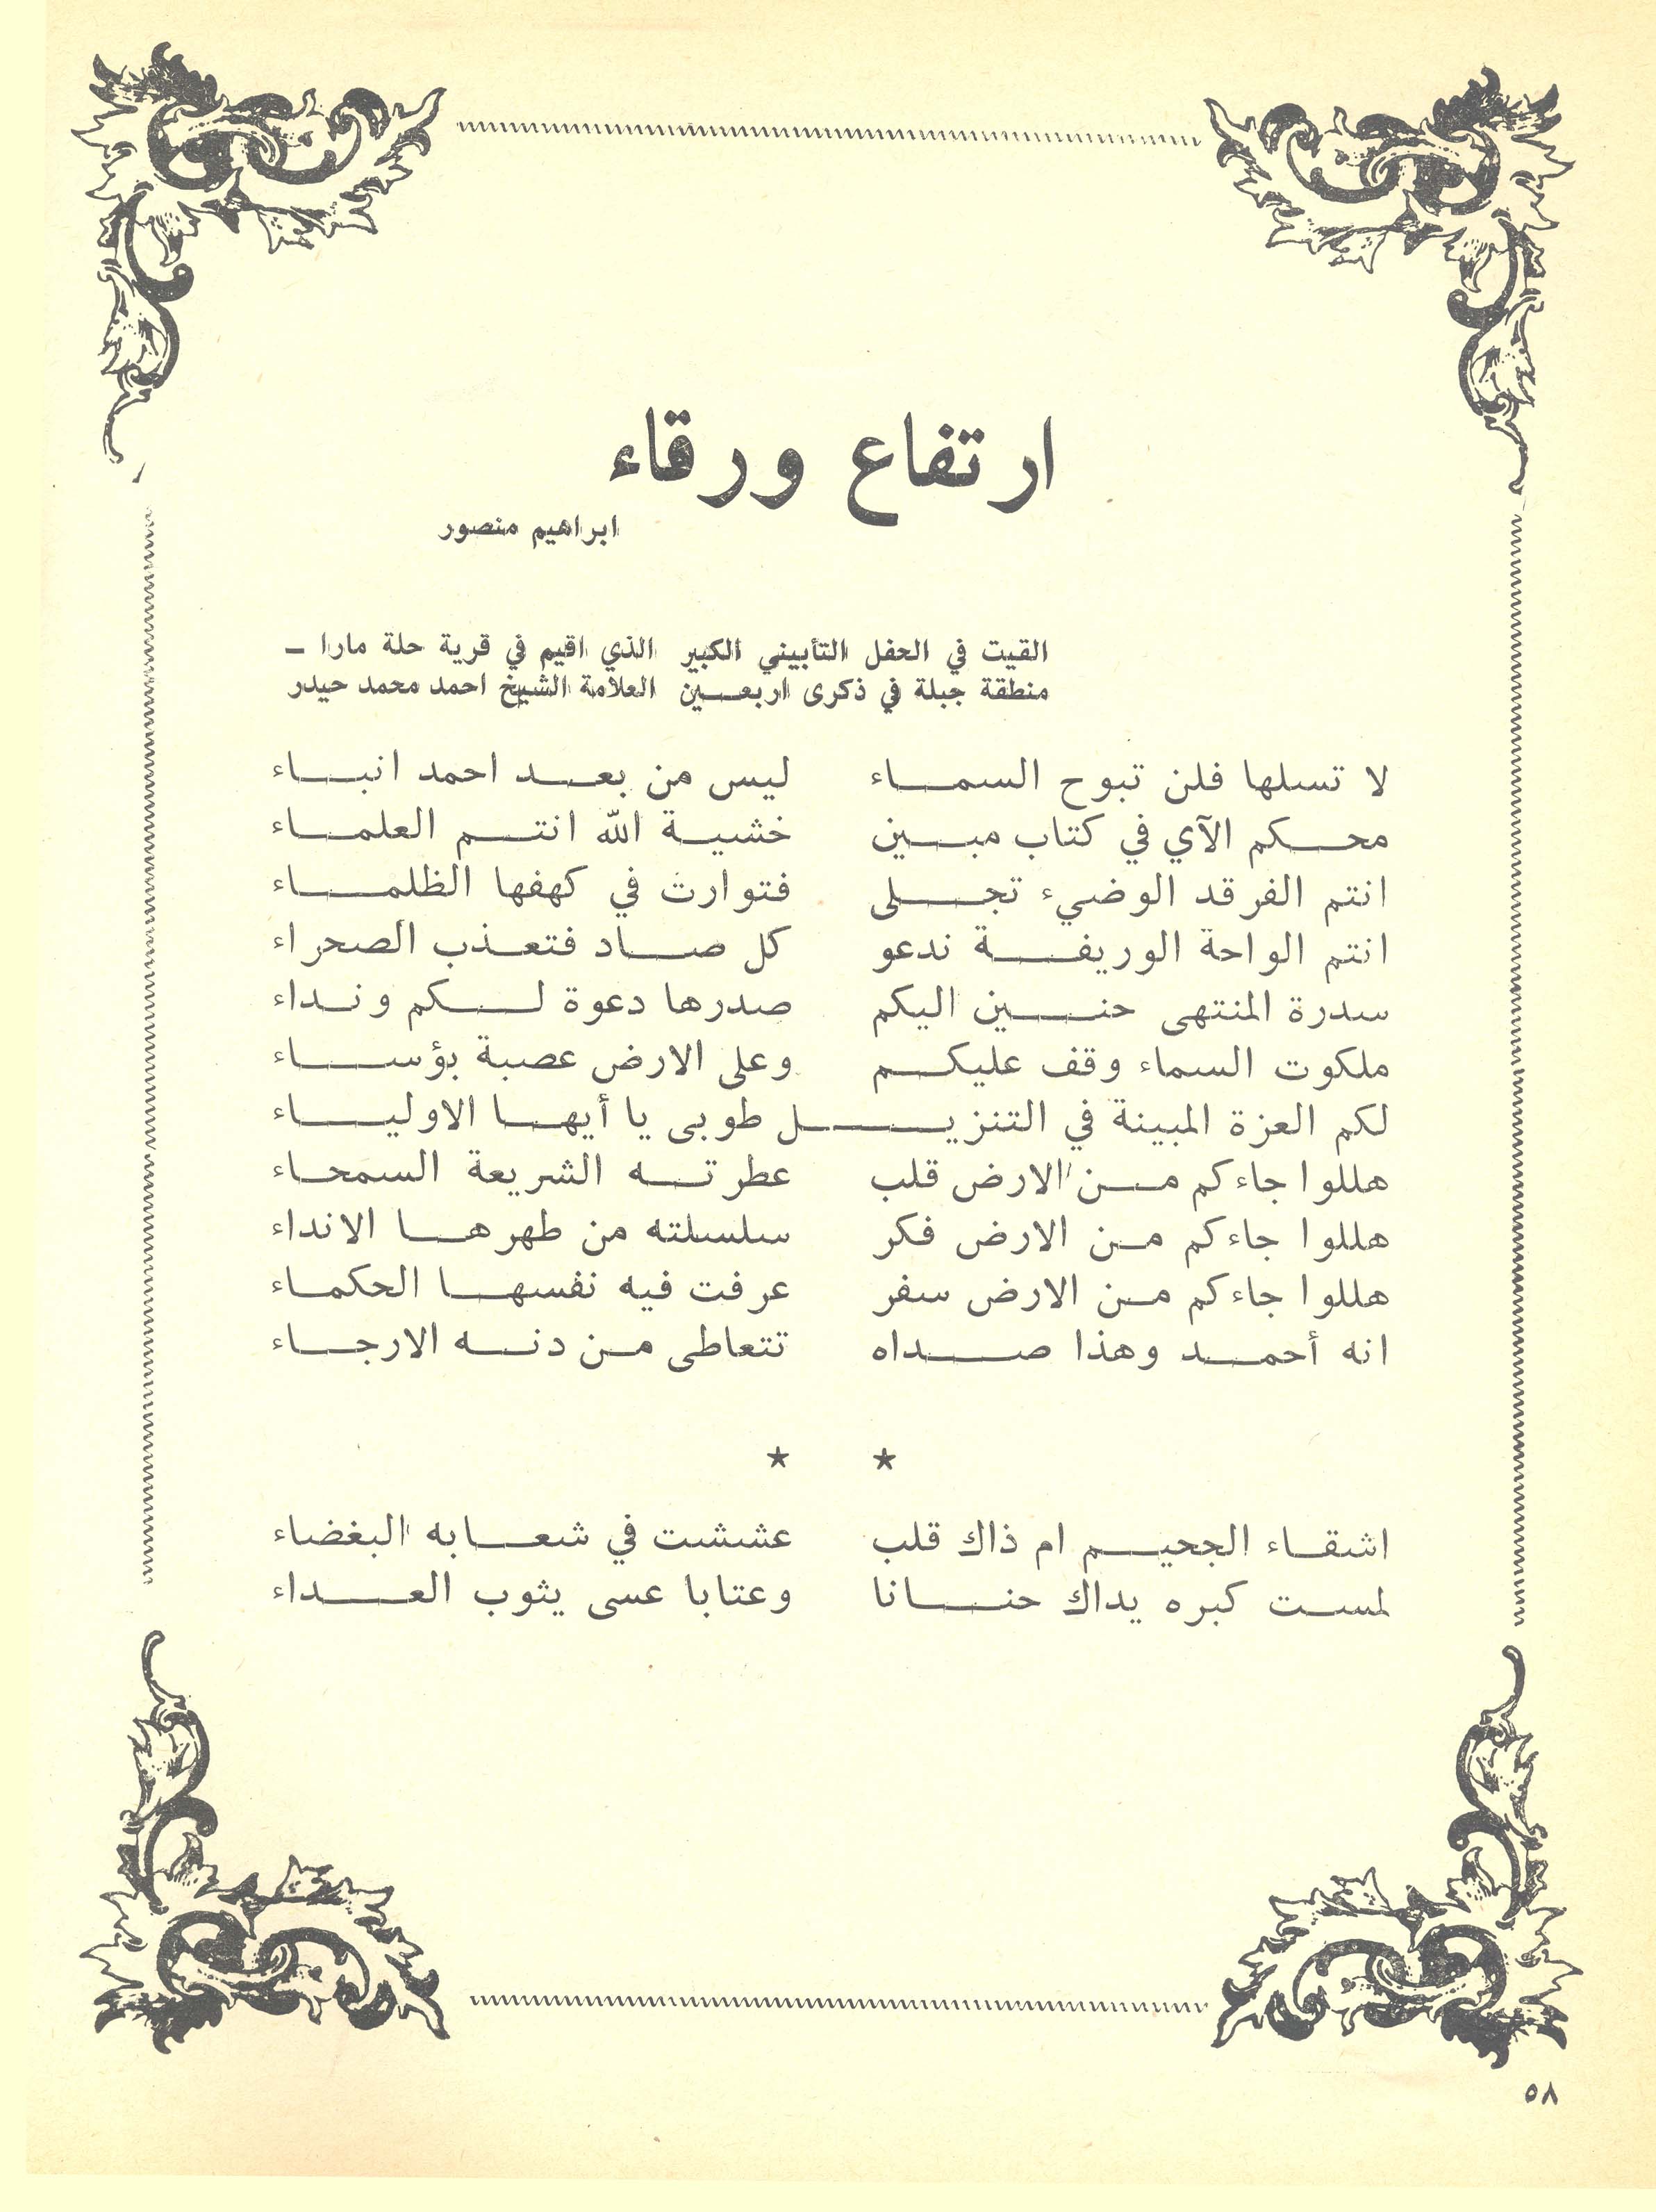 ارتفاع ورقاء
ابراهيم منصور
القيت في الحفل التأبيني الكبير الذي اقيم في قرية حلة مارا –
منطقة جبلة في ذكرى اربعين العلامة الشيخ احمد محمد حيدر
لا تسلها فلن تبوح السماء ليس من بعد احمد انباء
محكم الآي في كتاب مبين خشية الله انتم العلماء
انتم الفرقد الوضيء تجلى فتوارث في كهفها الظلماء
انتم الواحة الوريفة ندعو كل صاد فتعذب الصحراء
سدرة المنتهى حنين اليكم صدرها دعوة لكم ونداء
ملكوت السماء وقف عليكم وعلى الارض عصبة بؤساء
لكم العزة المبينة في التنزيل طوبى يا أيها الاولياء
هللوا جاءكم من الارض قلب عطرته الشريعة السمحاء
هللوا جاءكم من الارض فكر سلسلته من طهرها الانداء
هللوا جاءكم من الارض سفر عرفت فيه نفسها الحكماء
انه أحمد وهذا صداه تتعاطى من دنه الارجاء
★ ★
اشقاء الجحيم ام ذاك قلب عششت في شعابه البغضاء
لمست كبره يداك حنانا وعتابا عسى يثوب العداء
٥٨